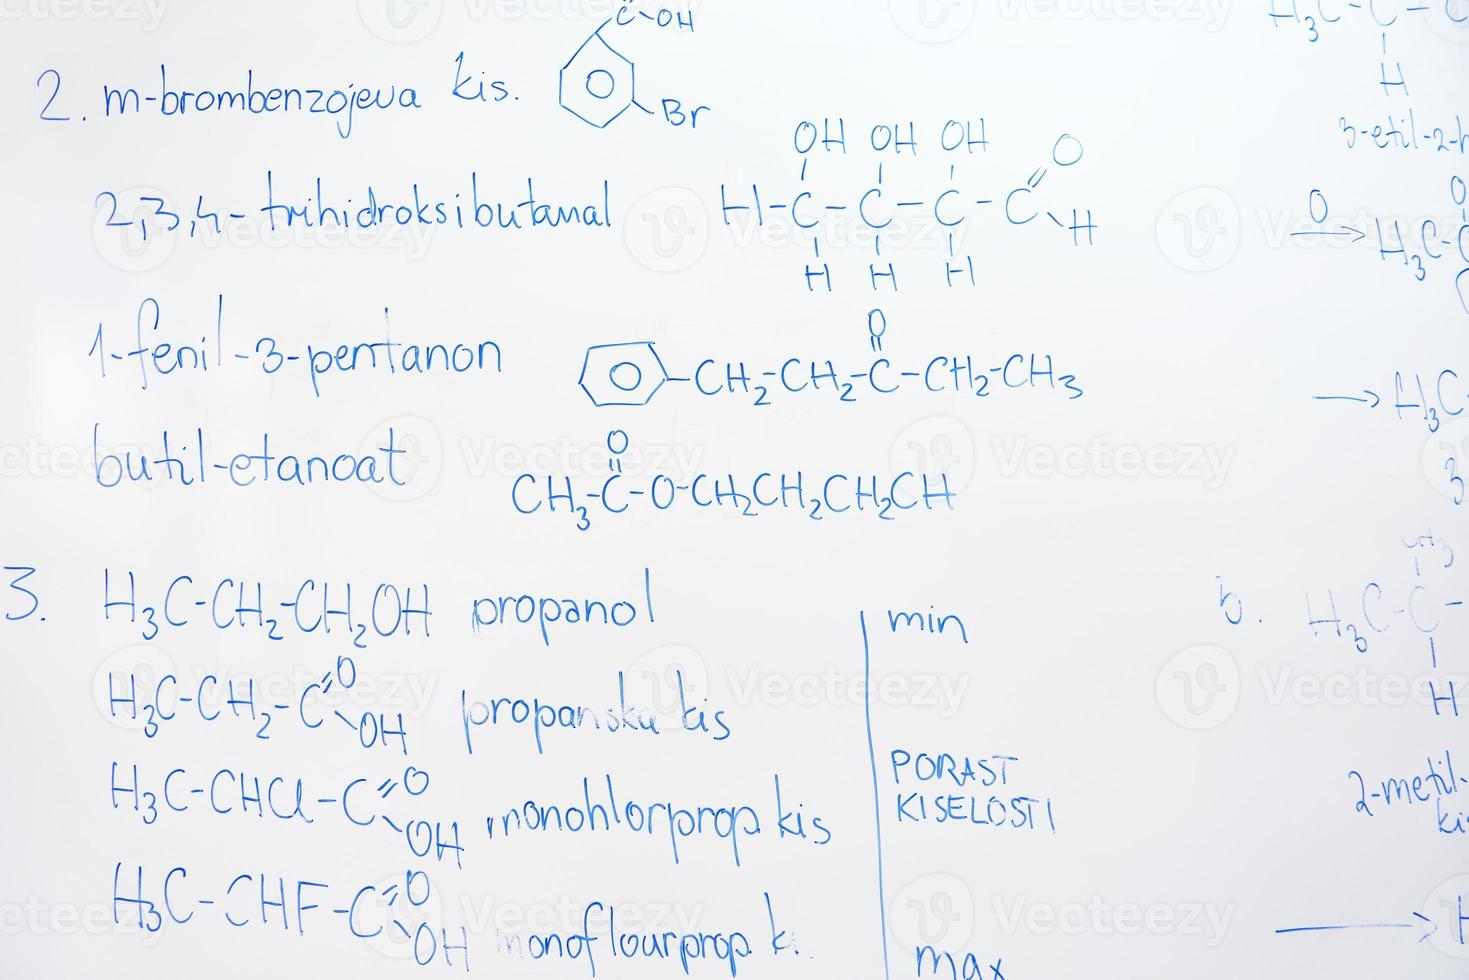 C-OH
2. m-brombenzojeva kis.
Br
2,3,4-trihidroksibutanal
OH OH OH O
H-C-C-C-C
H
H H H
1-fenil-3-pentanon
O
-CH2-CH2-C-CH2-CH3
butil-etanoat
O
CH3-C-O-CH2CH2CH2CH
3. H3C-CH2-CH2OH propanol
H3C-CH2-C=O OH propanska kis
H3C-CHCl-C=O OH monohlorprop. kis
H3C-CHF-C=O OH monoflourprop. k.
min
PORAST
KISELOSTI
max
H3C-C-
H
3-etil-2-
O
→ H3C-
→ H3C
3
b. H3C-C-
H
2-metil-
→ H
Vecteezy